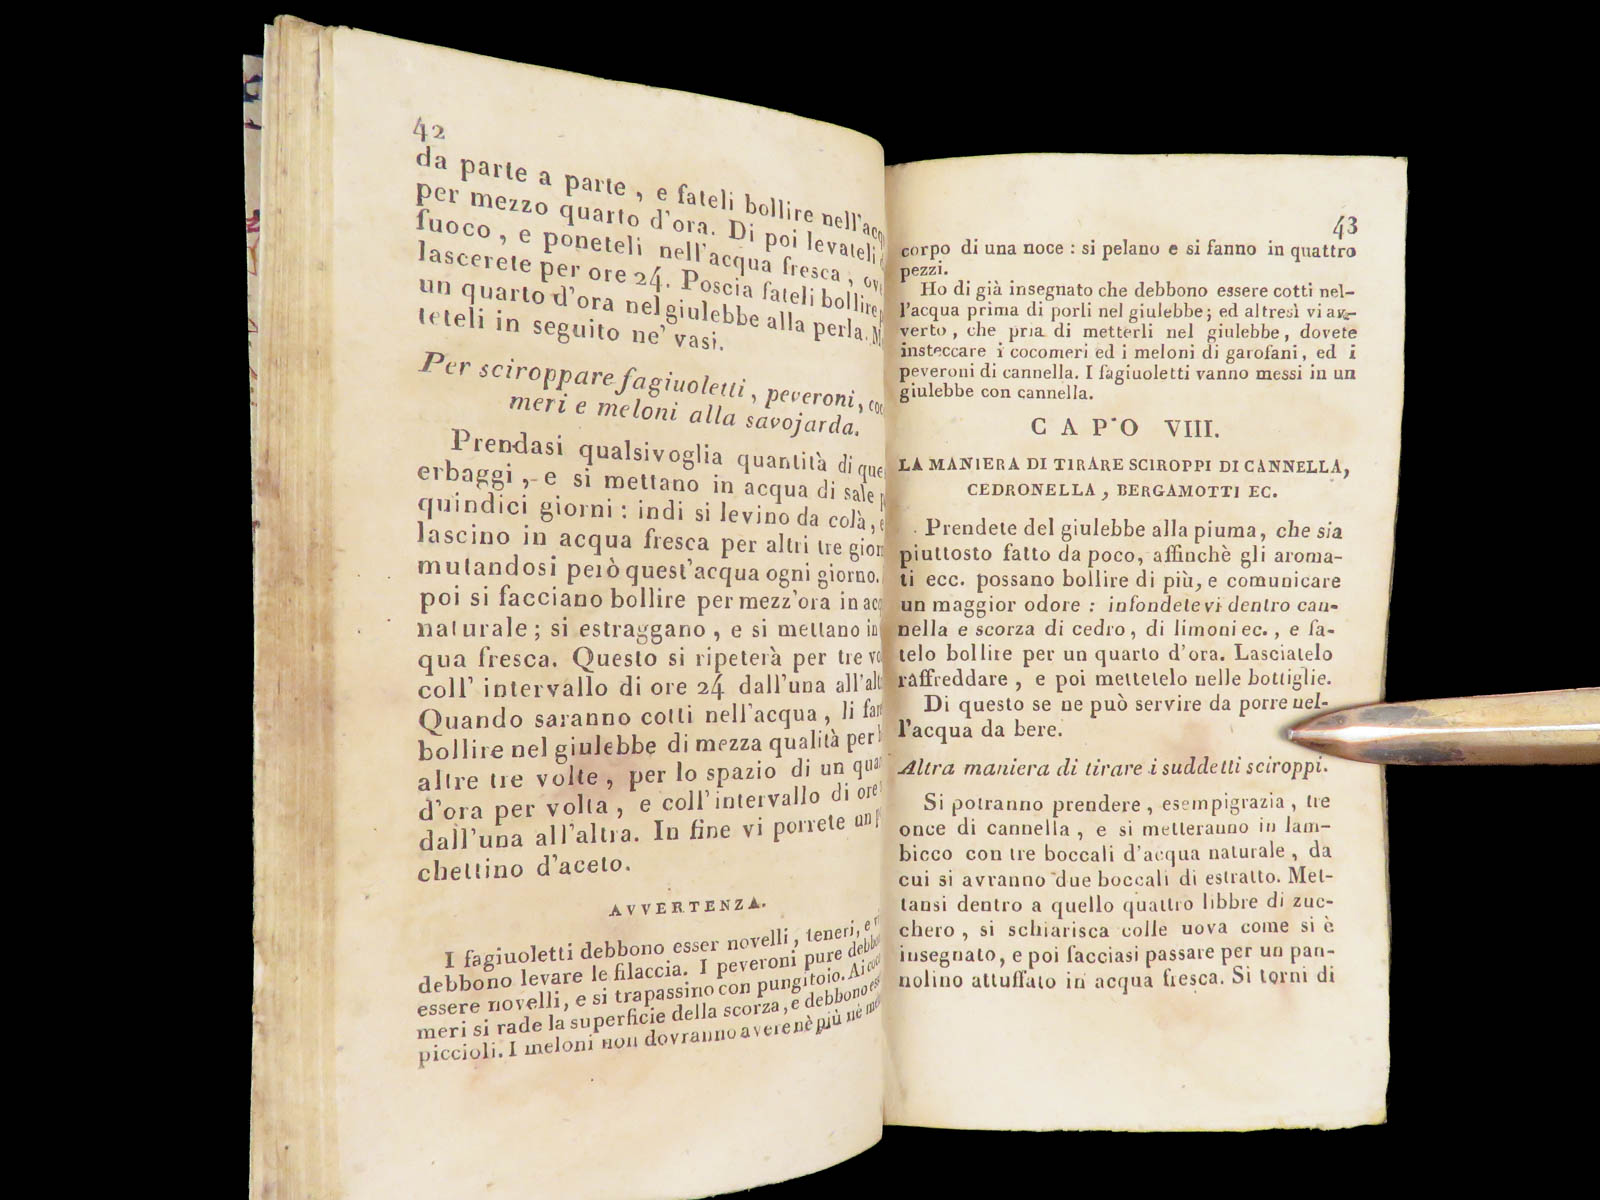 42
da parte a parte, e fateli bollire nell'acq
per mezzo quarto d'ora. Di poi levateli
fuoco, e poneteli nell'acqua fresca, ov
lascerete per ore 24. Poscia fateli bollire p
un quarto d'ora nel giulebbe alla perla. M
teteli in seguito ne' vasi.
Per sciroppare fagiuoletti, peveroni, coc
meri e meloni alla savojarda.
Prendasi qualsivoglia quantità di que
erbaggi, e si mettano in acqua di sale p
quindici giorni: indi si levino da colà, e
lascino in acqua fresca per altri tre gior
mutandosi però quest'acqua ogni giorno.
poi si facciano bollire per mezz'ora in acq
naturale; si estraggano, e si mettano in
qua fresca. Questo si ripeterà per tre vo
coll' intervallo di ore 24 dall'una all'alt
Quando saranno cotti nell'acqua, li far
bollire nel giulebbe di mezza qualità per
altre tre volte, per lo spazio di un quar
d'ora per volta, e coll'intervallo di ore
dall'una all'altra. In fine vi porrete un p
chettino d'aceto.
AVVERTENZA.
I fagiuoletti debbono esser novelli, teneri, e vi
debbono levare le filaccia. I peveroni pure debbon
essere novelli, e si trapassino con pungitoio. Ai coco
meri si rade la superficie della scorza, e debbono ess
piccioli. I meloni non dovranno avere nè più nè me
43
corpo di una noce: si pelano e si fanno in quattro
pezzi.
Ho di già insegnato che debbono essere cotti nel-
l'acqua prima di porli nel giulebbe; ed altresì vi av-
verto, che pria di metterli nel giulebbe, dovete
insteccare i cocomeri ed i meloni di garofani, ed i
peveroni di cannella. I fagiuoletti vanno messi in un
giulebbe con cannella.
CAPO VIII.
LA MANIERA DI TIRARE SCIROPPI DI CANNELLA,
CEDRONELLA, BERGAMOTTI EC.
Prendete del giulebbe alla piuma, che sia
piuttosto fatto da poco, affinchè gli aroma-
ti ecc. possano bollire di più, e comunicare
un maggior odore: infondetevi dentro can-
nella e scorza di cedro, di limoni ec., e fa-
telo bollire per un quarto d'ora. Lasciatelo
raffreddare, e poi mettetelo nelle bottiglie.
Di questo se ne può servire da porre nel-
l'acqua da bere.
Altra maniera di tirare i suddetti sciroppi.
Si potranno prendere, esempigrazia, tre
once di cannella, e si metteranno in lam-
bicco con tre boccali d'acqua naturale, da
cui si avranno due boccali di estratto. Met-
tansi dentro a quello quattro libbre di zuc-
chero, si schiarisca colle uova come si è
insegnato, e poi facciasi passare per un pan-
nolino attuffato in acqua fresca. Si torni di